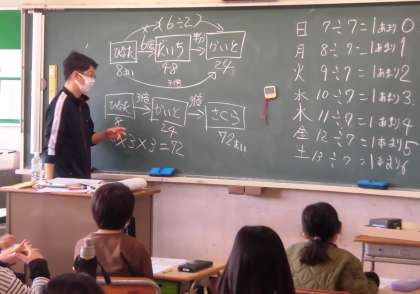 (6÷2)
ひなた 6倍 だいち 半分 かいと
8まい 48 24
3倍
ひなた 3倍 かいと 3倍 さくら
8 24 72まい
×3×3=72
日 7÷7=1あまり0
月 8÷7=1あまり1
火 9÷7=1あまり2
水 10÷7=1あまり3
木 11÷7=1あまり4
金 12÷7=1あまり5
土 13÷7=1あまり6